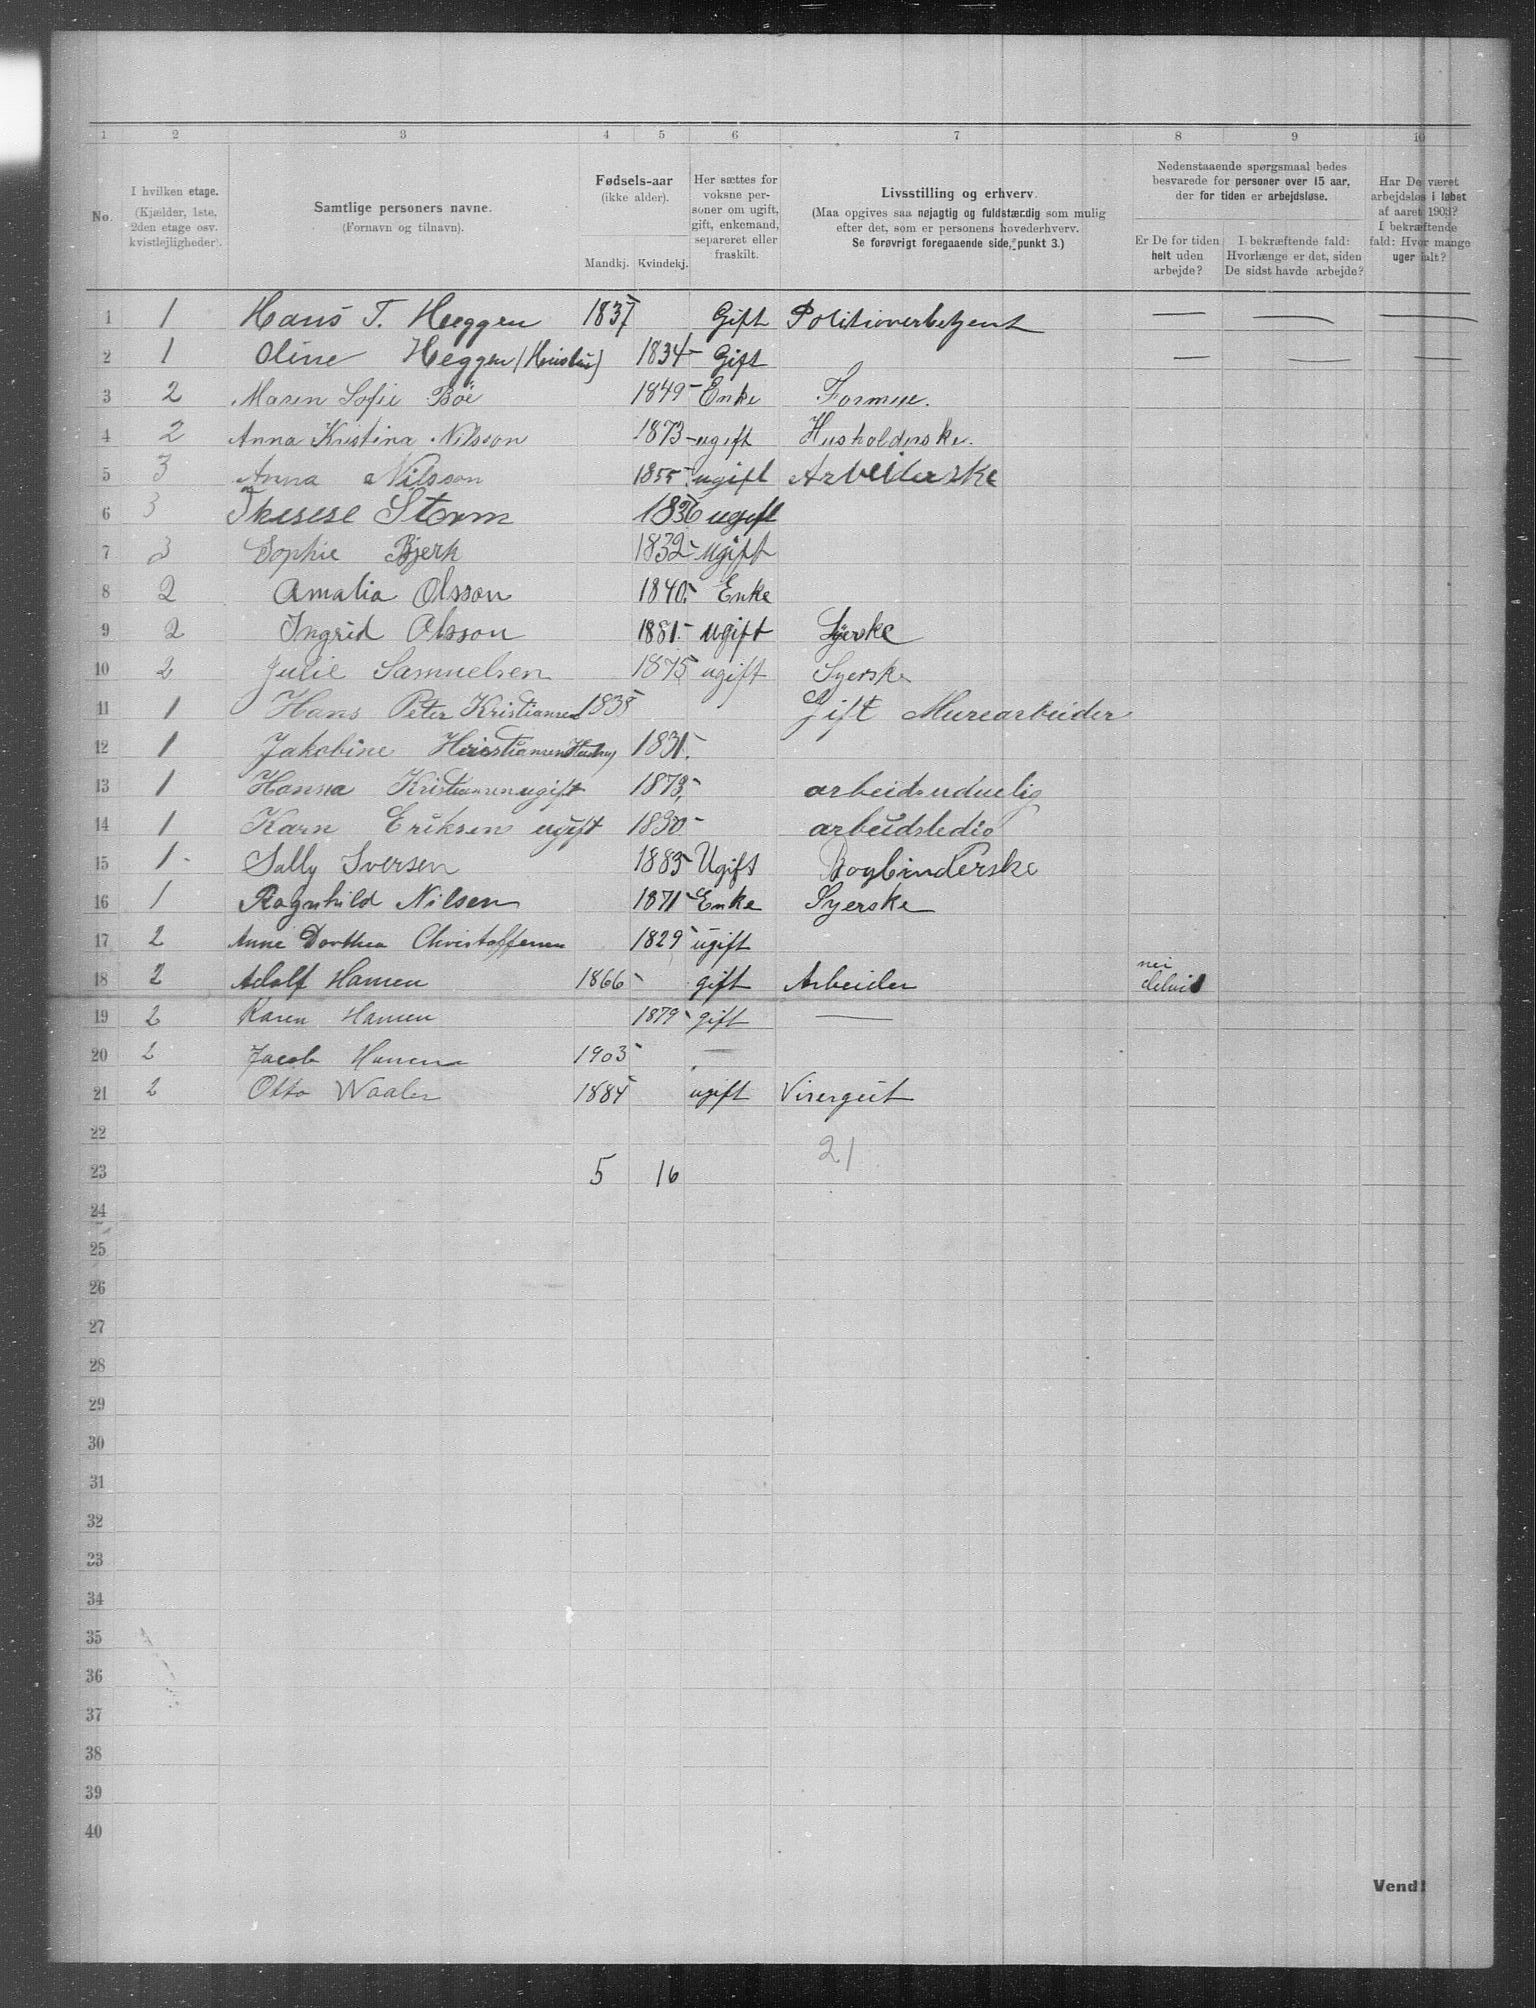 1 2 3 4 5 6 7 8 9 10
No.
I hvilken etage.
(Kjælder, 1ste,
2den etage osv.
kvistlejligheder).
Samtlige personers navne.
(Fornavn og tilnavn).
Fødsels-aar
(ikke alder).
Mandkj. Kvindekj.
Her sættes for
voksne per-
soner om ugift,
gift, enkemand,
separeret eller
fraskilt.
Livsstilling og erhverv.
(Maa opgives saa nøjagtig og fuldstændig som mulig
efter det, som er personens hovederhverv.
Se forøvrigt foregaaende side, punkt 3.)
Nedenstaaende spørgsmaal bedes
besvarede for personer over 15 aar,
der for tiden er arbejdsløse.
Er De for tiden
helt uden
arbejde?
I bekræftende fald:
Hvorlænge er det, siden
De sidst havde arbejde?
Har De været
arbejdsløs i løbet
af aaret 1903?
I bekræftende
fald: Hvor mange
uger ialt?
1 1 Hans T. Heggen 1837 Gift Politioverbetjent — — —
2 1 Oline Heggen (Hustru) 1834 Gift — — —
3 2 Maren Sofie Böe 1849 Enke
4 2 Anna Kristina Nilsson 1873 ugift Husholderske.
5 3 Anna Nilsson 1855 ugift Arbeiderske
6 3 Therese Storm 1836 ugift
7 3 Sophie Bjerk 1832 ugift
8 2 Amalia Olsson 1840 Enke
9 2 Ingrid Olsson 1881 ugift Syerske
10 2 Julie Samuelsen 1875 ugift Syerske
11 1 Hans Peter Kristiansen 1838 Gift Murearbeider
12 1 Jakobine Kristiansen Hustru 1831.
13 1 Hanna Kristiansen ugift 1873, arbeidsuduelig
14 1 Karn Eriksen ugift 1830 arbeidsledig
15 1 Sally Iversen 1885 Ugift Bogbinderske
16 1 Ragnhild Nilsen 1871 Enke Syerske
17 2 Anne Dorthea Christoffersen 1829 ugift
18 2 Adolf Hansen 1866 gift Arbeider nei delvis
19 2 Karen Hansen 1879 gift —
20 2 Jacob Hansen 1903 —
21 2 Otto Waaler 1884 ugift Visergut
22
21
23 5 16
24
25
26
27
28
29
30
31
32
33
34
35
36
37
38
39
40
Vend!